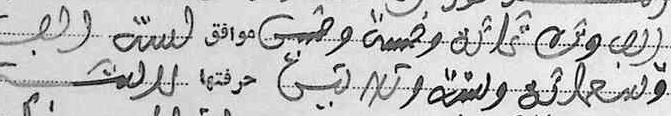 الف وثلاثمائة وخمسة وخمسين موافق لسنة الف
وتسعمائة وستة وثلاثين حرفتها